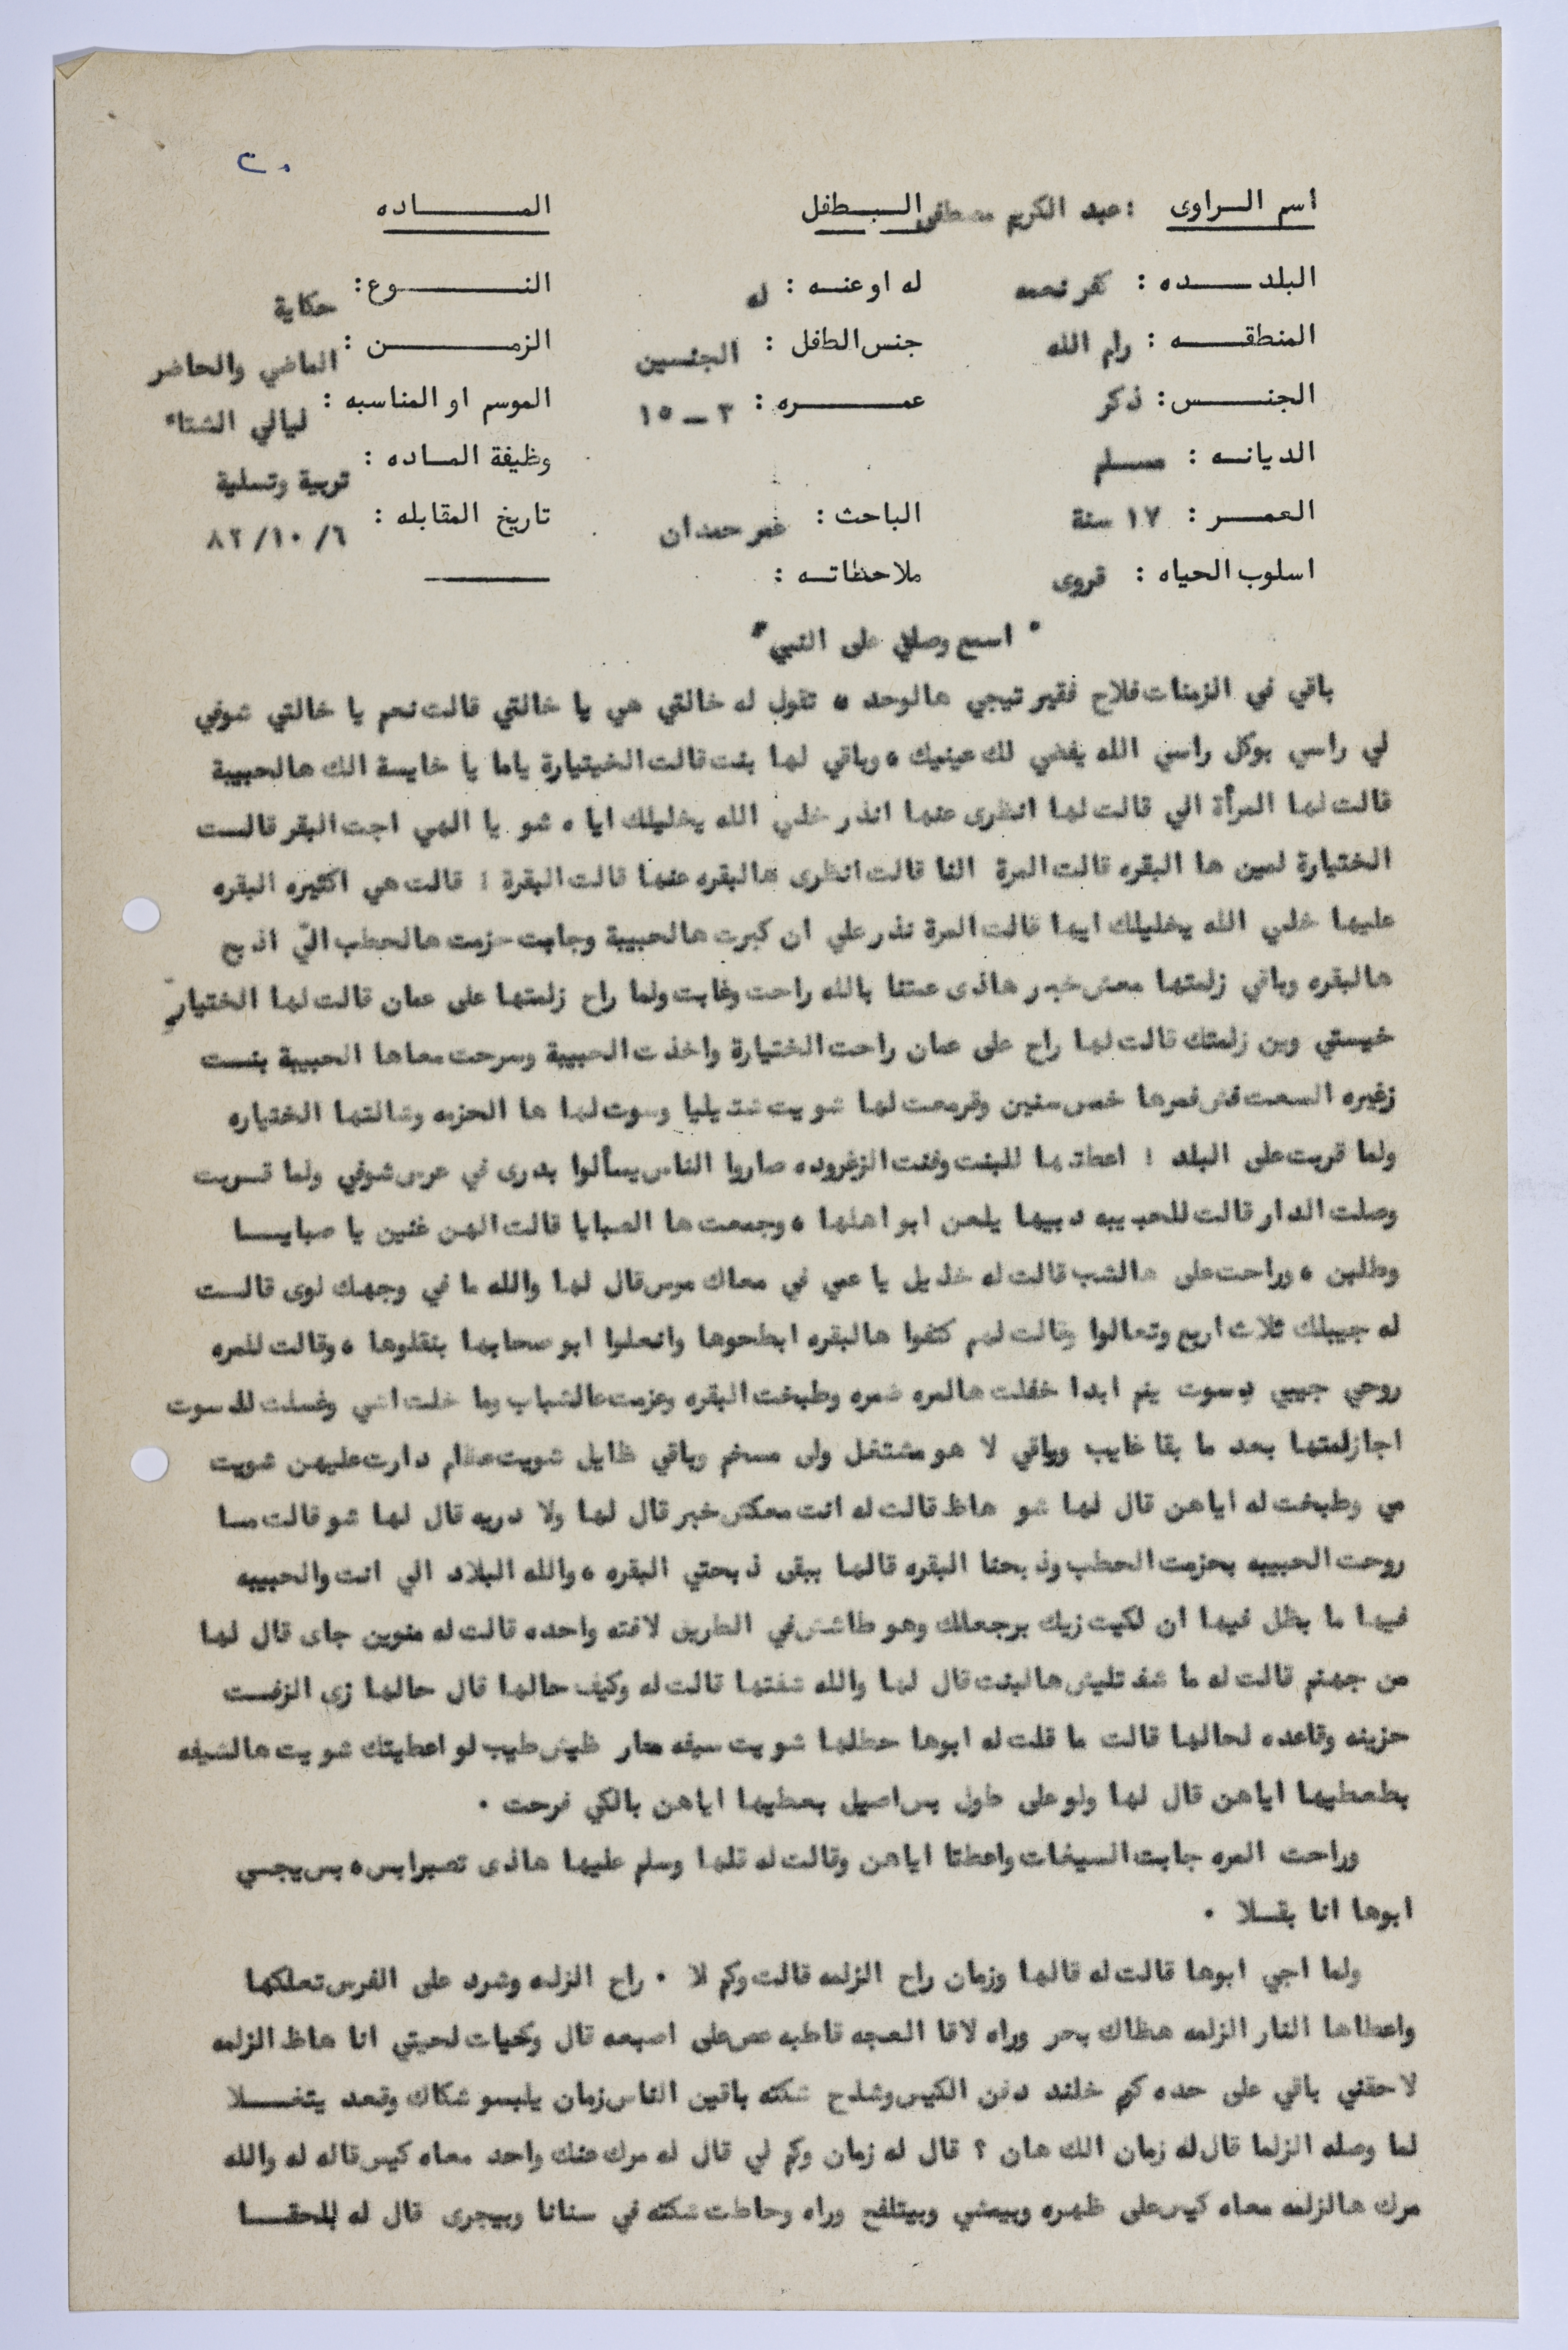 ٢٠
اسم الراوى : عبد الكريم مصطفى الطفل الماده
البلده : كفر نعمه له او عنه : له النوع : حكاية
المنطقه : رام الله جنس الطفل : الجنسين الزمن : الماضي والحاضر
الجنس : ذكر عمره : ٣ ــ ١٥ الموسم او المناسبه : ليالي الشتاء
الديانه : مسلم وظيفة الماده : تربية وتسلية
العمر : ١٧ سنة الباحث : عمر حمدان تاريخ المقابله : ٦/ ١٠/ ٨٢
اسلوب الحياه : قروى ملاحظاته :
" اسمع وصلي على النبي "
باقي في الزمنات فلاح فقير تيجي هالوحده تقول له خالتي هي يا خالتي قالت نعم يا خالتي شوفي
لي راسي بوكل راسي الله يخلي لك عينيك ٠ وباقي لها بنت قالت الخيتيارة ياما يا خايسة الك هالحبيبة
قالت لها المرأة الي قالت لها انظرى عنها انذر خلي الله يخليلك اياه شو يا الهي اجت البقر قالت
الختيارة لمين ها البقره قالت المرة النا قالت انظرى هالبقره عنها قالت البقرة ! قالت هي اكثيره البقره
عليها خلي الله يخليلك ايها قالت المرة نذر علي ان كبرت هالحبيبة وجابت حزمت هالحطب اليّ اذبح
هالبقره وباقي زلمتها معش خبر هاذى عمتنا بالله راحت وغابت ولما راح زلمتها على عمان قالت لها الختيار
خيستي وين زلمتك قالت لها راح على عمان راحت الختيارة واخذت الحبيبة وسرحت معاها الحبيبة بنت
زغيره السعت فش عمرها خمس سنين وقرمعت لها شويت نتديليا وسوت لها ها الحزمه وشالتها الختياره
ولما قربت على البلد ! اعطتها للبنت وغنت الزغروده صاروا الناس يسألوا بدرى في عرس شوفي ولما قربت
وصلت الدار قالت للحبيبه دبيها يلعن ابو اهلها ٠ وجمعت ها الصبايا قالت الهن غنين يا صبايا
وطلين ٠ وراحت على هالشب قالت له خذيل يا عمي في معاك موس قال لها والله ما في وجهك لوى قالت
له جيبلك ثلاث اربع وتعالوا وقالت لهم كتفوا هالبقره ابطحوها وانعلوا ابو صحابها بنقلوها ٠ وقالت للمره
روحي جيبي دسوت يم ابدا خفلت هالمره ضمره وطبخت البقره وعزمت عالشباب وما خلت اشي وغسلت للدسوت
اجا زلمتها بعد ما بقا غايب وباقي لا هو مشتغل ولى مسخم وباقي ظايل شويت عظام دارت عليهن شويت
مي وطبخت له اياهن قال لها شو هاظ قالت له انت معكش خبر قال لها ولا دريه قال لها شو قالت ما
روحت الحبيبه بحزمت الحطب وذبحنا البقره قالها يبقى ذبحتي البقره ٠ والله البلاد الي انت والحبيبه
فيها ما بظل فيها ان لكيت زيك برجعلك وهو طاشش في الطريق لافته واحده قالت له منوين جاى قال لها
من جهنم قالت له ما شفتليش هالبنت قال لها والله شفتها قالت له وكيف حالها قال حالها زى الزفت
حزينه وقاعده لحالها قالت ما قلت له ابوها حطلها شويت سيغه معار ظيش طيب لو اعطيتك شويت هالشيغه
بطعطيها اياهن قال لها ولو على طول بس اصيل بعطيها اياهن بالكي فرحت ٠
وراحت المره جابت السيغات واعطتا اياهن وقالت له قلها وسلم عليها هاذى تصبر ابس ٥ بس يجي
ابوها انا بقلا ٠
ولما اجي ابوها قالت له قالها وزمان راح الزلمه قالت وكم لا ٠ راح الزلمه وشرد على الفرس تعلكها
واعطاها النار الزلمه هظاك بحر وراه لاقا العجه قاطبه عص على اصبعه قال وكحيات لحيتي انا هاظ الزلمه
لاحقني باقي على حده كم خلند دفن الكيس وشلح شكته باقين الناس زمان يلبسو شكاك وقعد يتخلا
لما وصله الزلما قال له زمان الك هان ؟ قال له زمان وكم لي قال له مرك عنك واحد معاه كيس قاله له والله
مرك هالزلمه معاه كيس على ظهره وبيمشي وبيتلفح وراه وحاطت شكته في سنانا وبيجرى قال له بلحقا